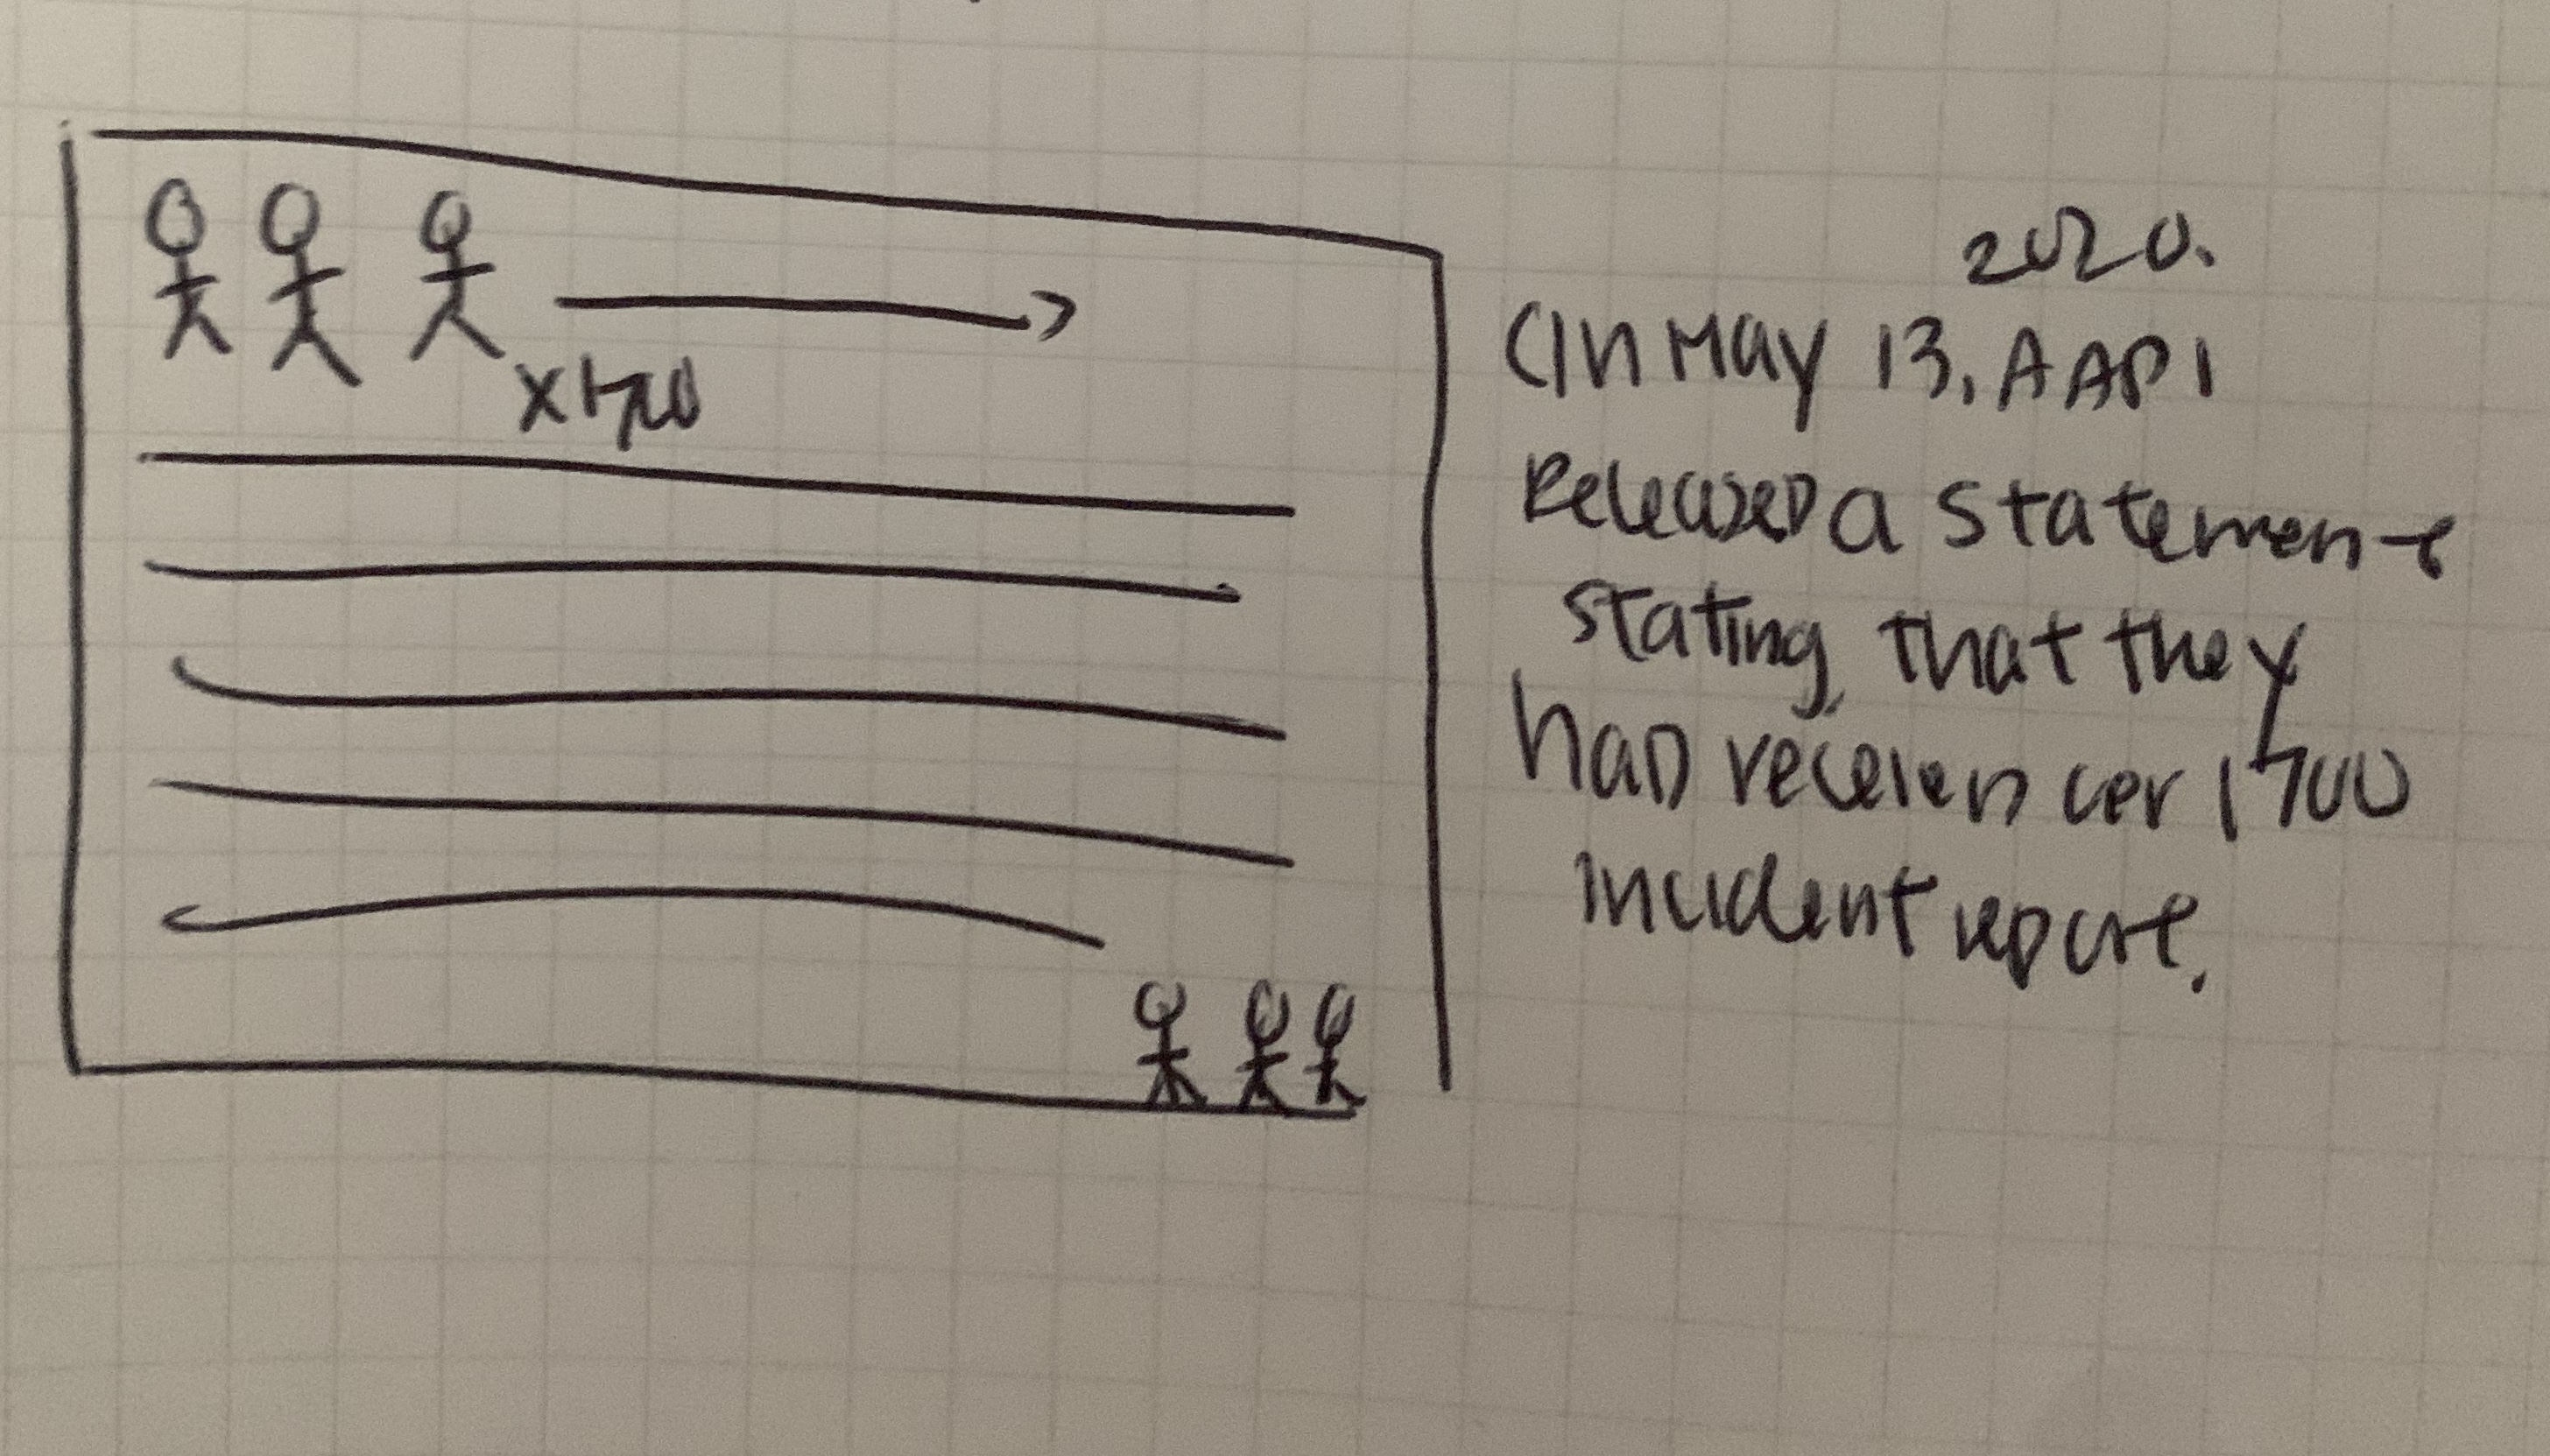 x1700
2020.
(In May 13, AAPI
Released a statement
stating that they
had received over 1700
incident report.